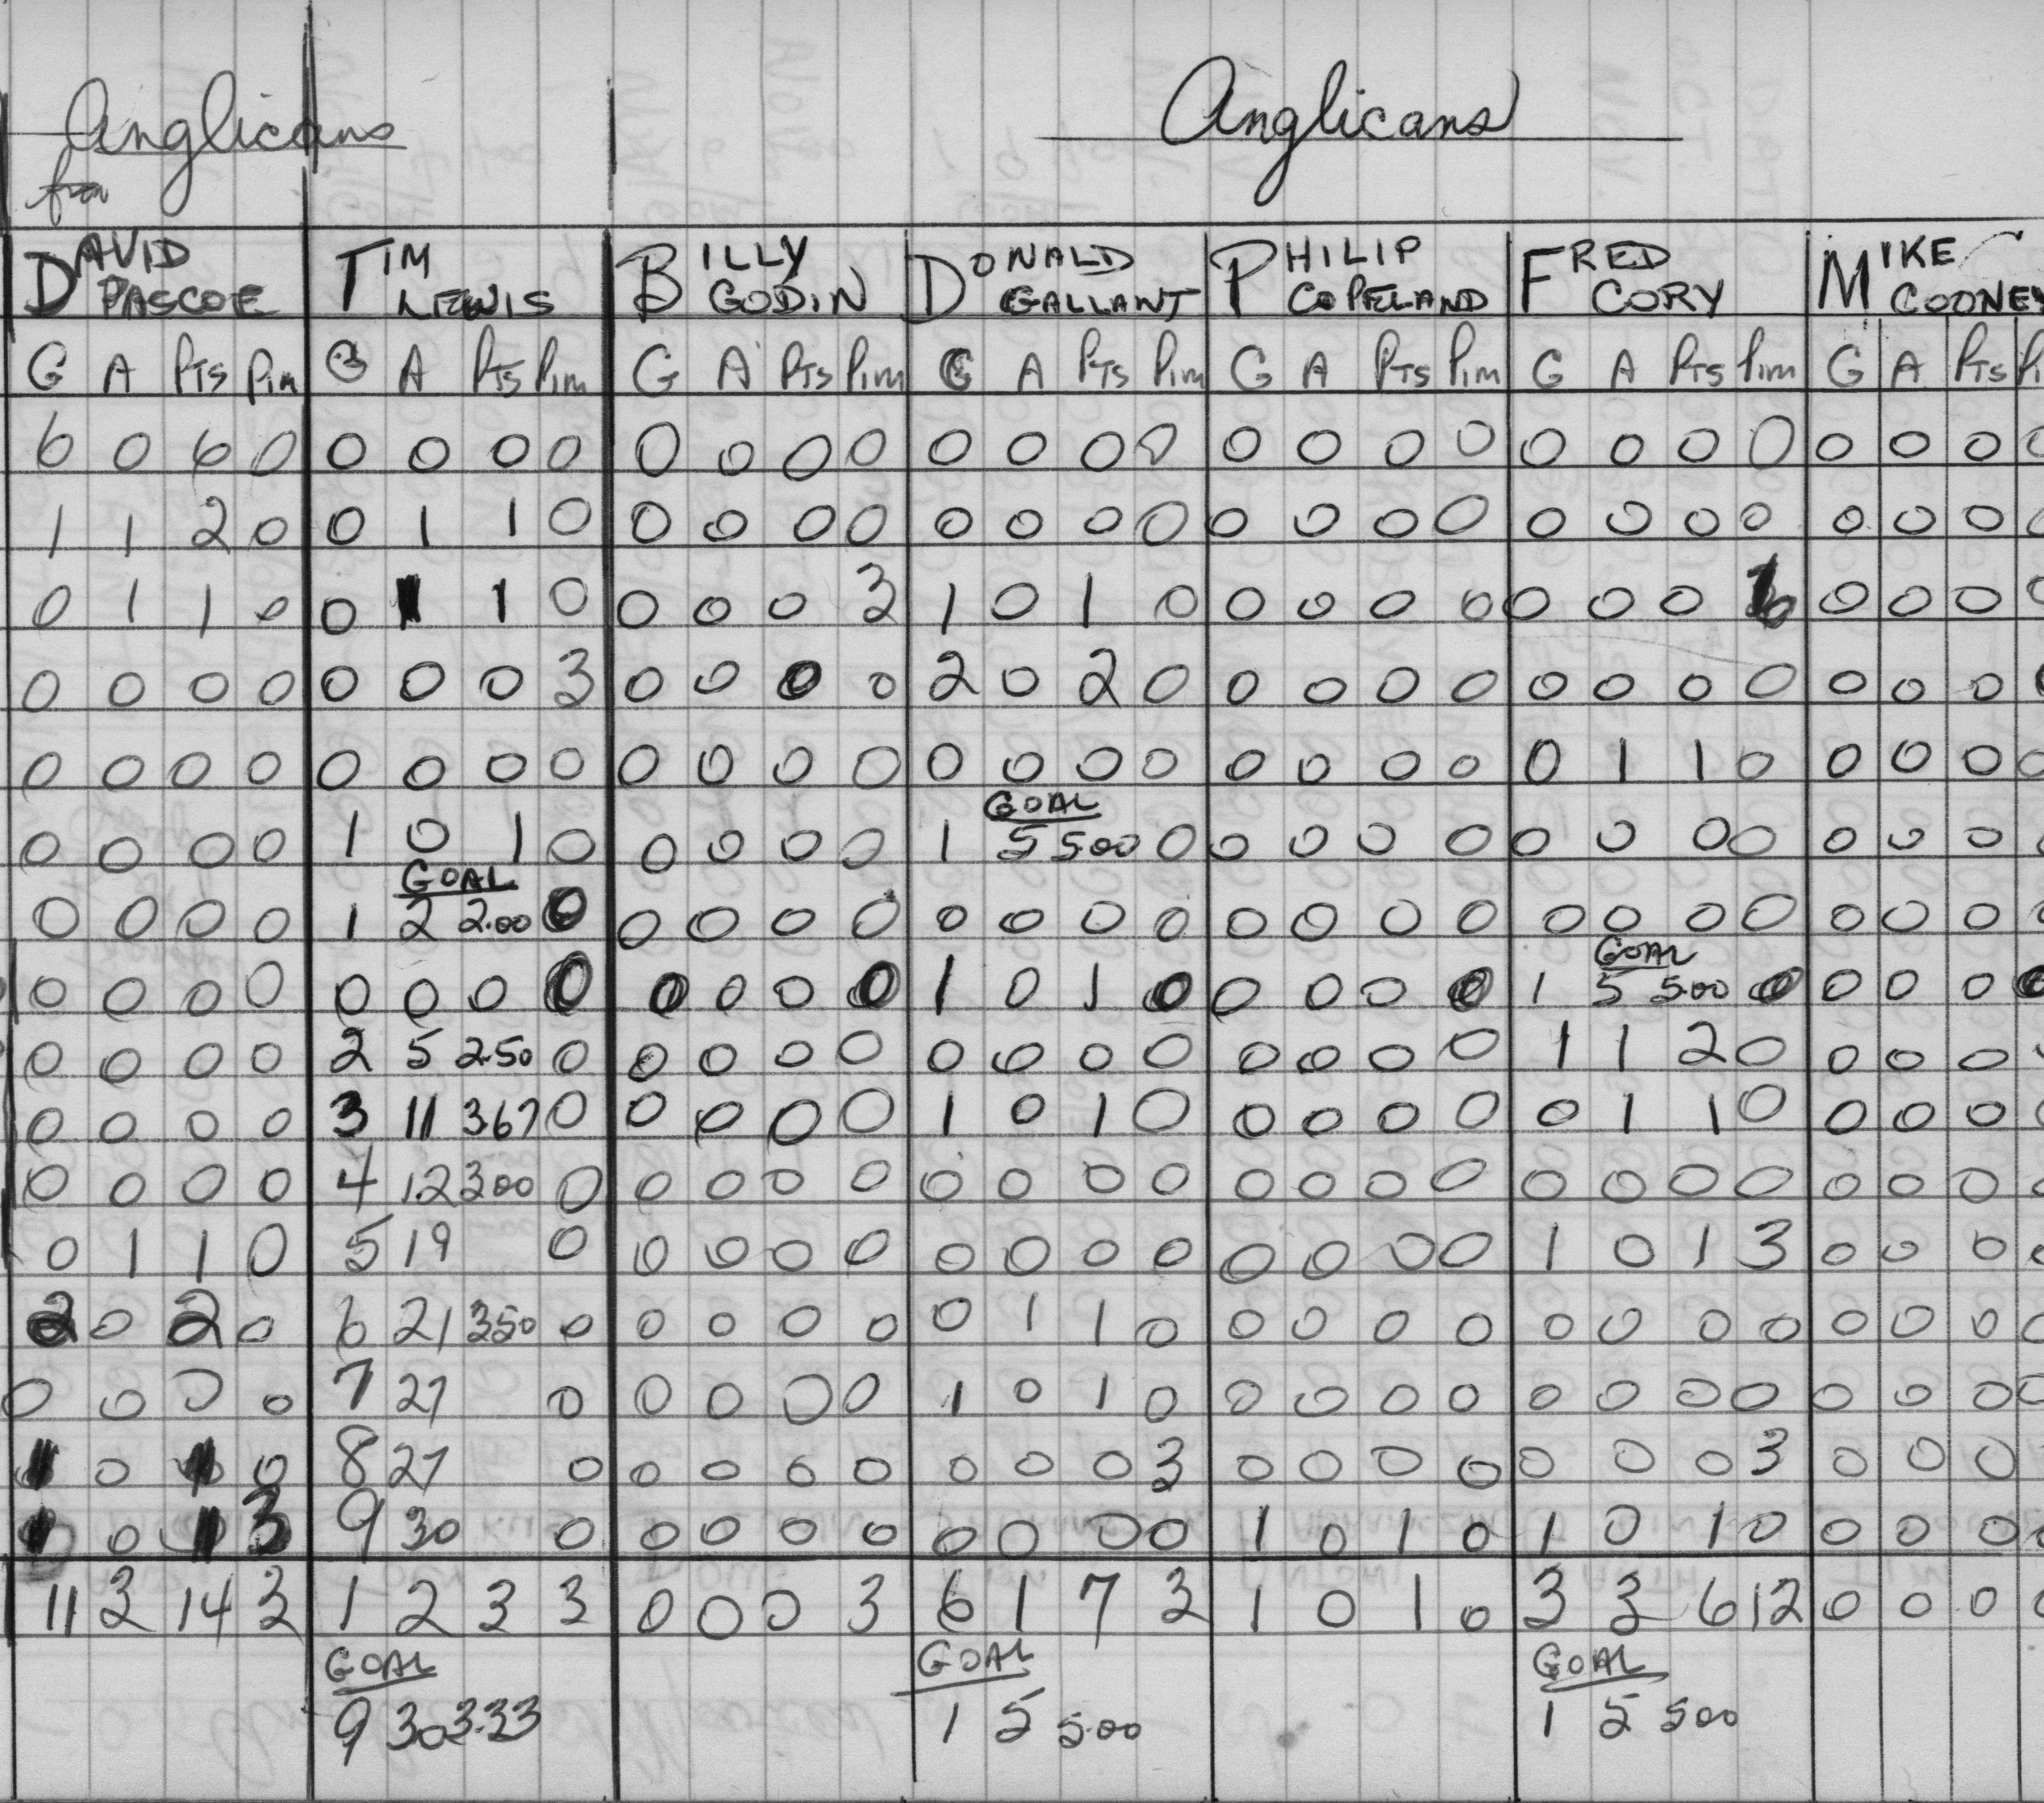 Anglicans Anglicans
DAVID PASCOE TIM LEWIS BILLY GODIN DONALD GALLANT PHILIP COPELAND FRED CORY MIKE COONEY
G A Pts Pim G A Pts Pim G A Pts Pim G A Pts Pim G A Pts Pim G A Pts Pim G A Pts
6 0 6 0 0 0 0 0 0 0 0 0 0 0 0 0 0 0 0 0 0 0 0 0 0 0 0 0
1 1 2 0 0 1 1 0 0 0 0 0 0 0 0 0 0 0 0 0 0 0 0 0 0 0 0 0
0 1 1 0 0 1 1 0 0 0 0 3 1 0 1 0 0 0 0 0 0 0 0 0 0 0 0
0 0 0 0 0 0 0 3 0 0 0 0 2 0 2 0 0 0 0 0 0 0 0 0 0 0 0 0
0 0 0 0 0 0 0 0 0 0 0 0 0 0 0 0 0 0 0 0 0 1 1 0 0 0 0 0
GOAL
0 0 0 0 1 0 1 0 0 0 0 0 1 5 5.00 0 0 0 0 0 0 0 0 0 0 0 0 0
GOAL
0 0 0 0 1 2 2.00 0 0 0 0 0 0 0 0 0 0 0 0 0 0 0 0 0 0 0 0 0
GOAL
0 0 0 0 0 0 0 0 0 0 0 0 1 0 1 0 0 0 0 0 1 5 5.00 0 0 0 0 0
0 0 0 0 2 5 2.50 0 0 0 0 0 0 0 0 0 0 0 0 0 1 1 2 0 0 0 0
0 0 0 0 3 11 367 0 0 0 0 0 1 0 1 0 0 0 0 0 0 1 1 0 0 0 0 0
0 0 0 0 4 12 300 0 0 0 0 0 0 0 0 0 0 0 0 0 0 0 0 0 0 0 0 0
0 1 1 0 5 19 0 0 0 0 0 0 0 0 0 0 0 0 0 1 0 1 3 0 0 0 0
2 0 2 0 6 21 350 0 0 0 0 0 0 1 1 0 0 0 0 0 0 0 0 0 0 0 0 0
0 0 0 0 7 27 0 0 0 0 0 1 0 1 0 0 0 0 0 0 0 0 0 0 0 0 0
1 0 1 0 8 27 0 0 0 0 0 0 0 0 3 0 0 0 0 0 0 0 3 0 0 0
1 0 1 3 9 30 0 0 0 0 0 0 0 0 0 1 0 1 0 1 0 1 0 0 0 0 0
11 3 14 3 1 2 3 3 0 0 0 3 6 1 7 3 1 0 1 0 3 3 6 12 0 0 0 0
GOAL GOAL GOAL
9 30 3.33 1 5 5.00 1 5 500